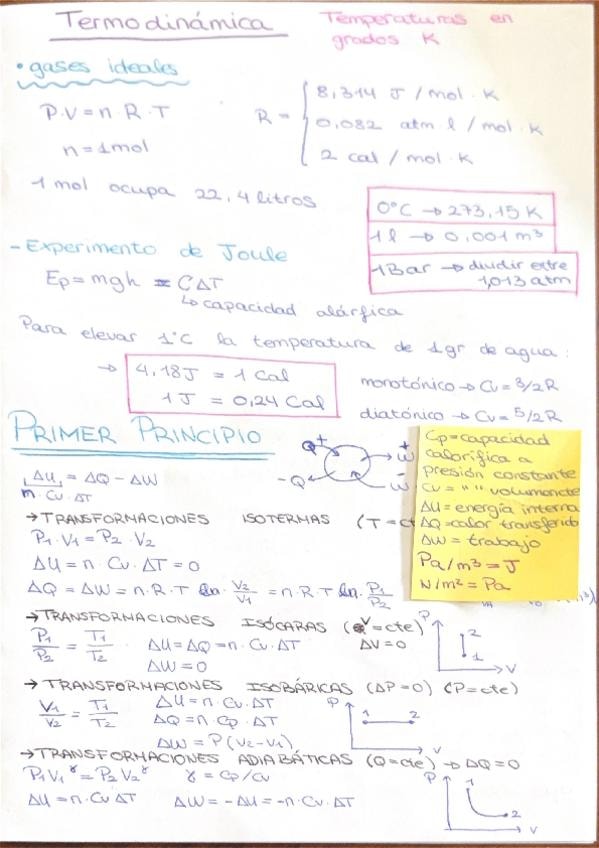 Termodinámica
Temperaturas en
grados K
• gases ideales
P·V = n·R·T
n = 1 mol
R =
8,314 J / mol · K
0,082 atm l / mol · K
2 cal / mol · K
1 mol ocupa 22,4 litros
0°C → 273,15 K
1 l → 0,001 m³
1 Bar → dividir entre
1,013 atm
- Experimento de Joule
Ep = mgh = C ΔT
↳ capacidad alárfica
Para elevar 1°C la temperatura de 1 gr de agua:
→ 4,18 J = 1 Cal
1 J = 0,24 Cal
monotónico → Cv = 3/2 R
diatónico → Cv = 5/2 R
PRIMER PRINCIPIO
Q + + W
- Q - W
ΔU = ΔQ - ΔW
n · Cv · ΔT
Cp = capacidad
calorífica a
presión constante
Cv = " " volumencte
ΔU = energía interna
ΔQ = calor transferido
ΔW = trabajo
Pa/m³ = J
N/m² = Pa
→ TRANSFORMACIONES ISOTERMAS (T = ct
P₁ · V₁ = P₂ · V₂
ΔU = n · Cv · ΔT = 0
ΔQ = ΔW = n · R · T ln · V₂/V₁ = n · R · T ln · P₁/P₂
→ TRANSFORMACIONES ISÓCARAS (V = cte)
ΔV = 0
P₁/P₂ = T₁/T₂
ΔU = ΔQ = n · Cv · ΔT
ΔW = 0
P
2
1
V
→ TRANSFORMACIONES ISOBÁRICAS (ΔP = 0) (P = cte)
V₁/V₂ = T₁/T₂
ΔU = n · Cv · ΔT
ΔQ = n · Cp · ΔT
ΔW = P (V₂ - V₁)
P
1 2
V
→ TRANSFORMACIONES ADIABÁTICAS (Q = cte) → ΔQ = 0
P₁V₁^γ = P₂V₂^γ γ = Cp/Cv
ΔU = n · Cv ΔT ΔW = -ΔU = -n · Cv · ΔT
P
1
2
V